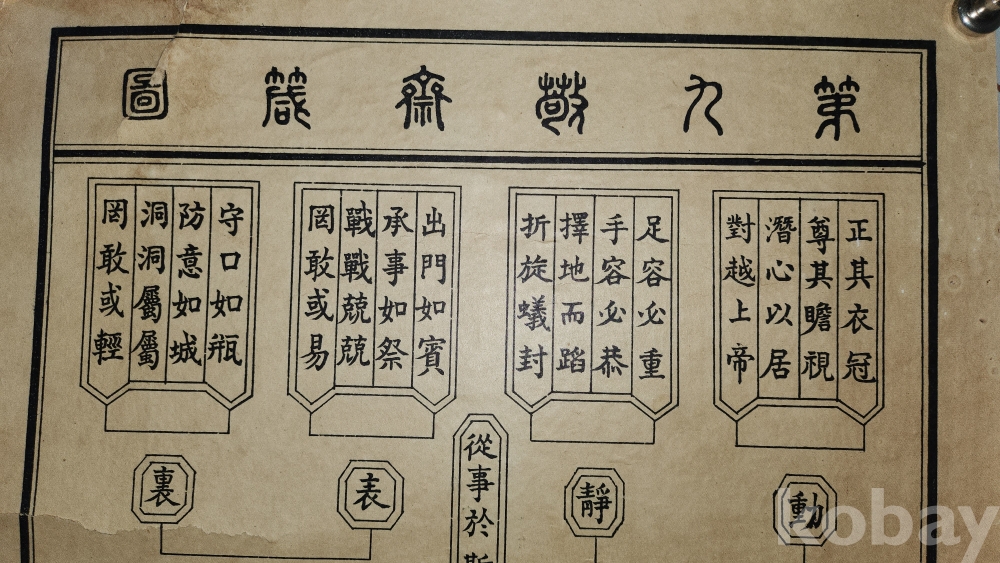 第九敬齋箴圖
正其衣冠
尊其瞻視
潛心以居
對越上帝
足容必重
手容必恭
擇地而蹈
折旋蟻封
出門如賓
承事如祭
戰戰兢兢
罔敢或易
守口如瓶
防意如城
洞洞屬屬
罔敢或輕
動
靜
從事於斯
表
裏
kobay